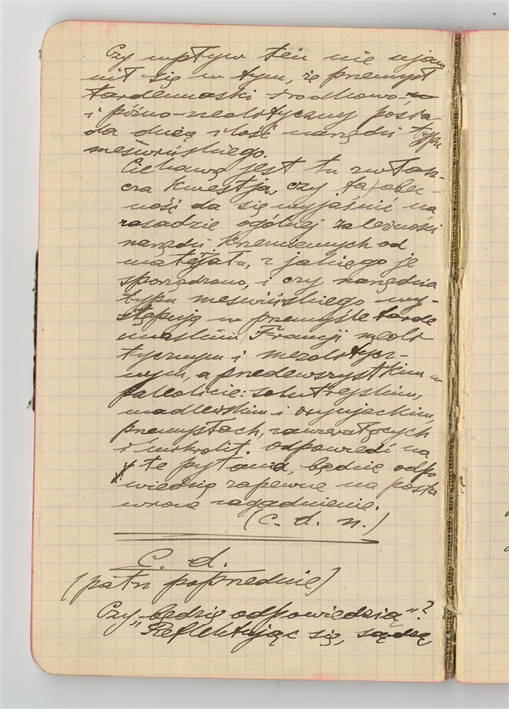 Czy wpływ ten nie ujaw
nił się w tym, że przemysł
tardenuaski środkowo-
i późno-neolityczny posia
da dużą ilość narzędzi typu
mešwińskiego.
Ciekawą jest tu zwłasz-
cza kwestja, czy ta obec-
ność da się wyjaśnić na
zasadzie ogólnej zależności
narzędzi krzemiennych od
materjału, z jakiego je
sporządzono, i czy narzędzia
typu mešwińskiego wy-
stępują w przemyśle tarde
nuaskim Francji neoli
tycznym i mezolitycz-
nym, a przedewszystkim w
paleolicie: solutrejskim,
madleńskim i oryniackim
przemysłach, zawierających
i mikrolit. odpowiedź na
te pytania będzie odpo
wiedzią zapewne na posta
wione zagadnienie.
(C. d. n.)
C. d.
(patrz poprzednie)
Czy „będzie odpowiedzią"?
Reflektując się, sądzę